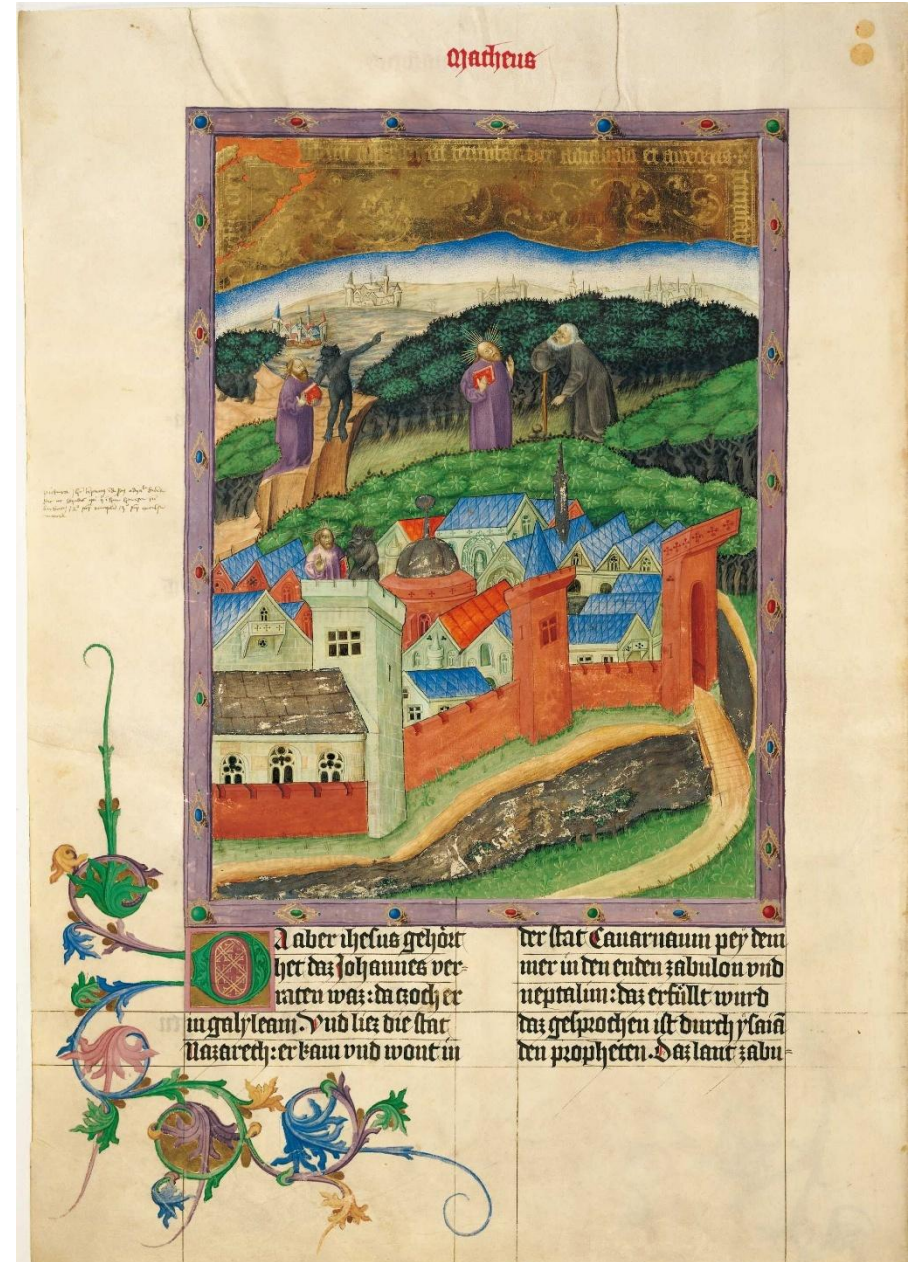 Matheus
DA aber ihesus gehört
het daz Johannes ver=
raten waz: da zoch er
in galyleam. Vnd liez die stat
Nazareth: er kam vnd wont in
der stat Cauarnaum pey dem
mer in den enden zabulon vnd
neptalim: daz erfüllt wurd
daz gesprochen ist durch ysaiā
den propheten. Daz lant zabu=